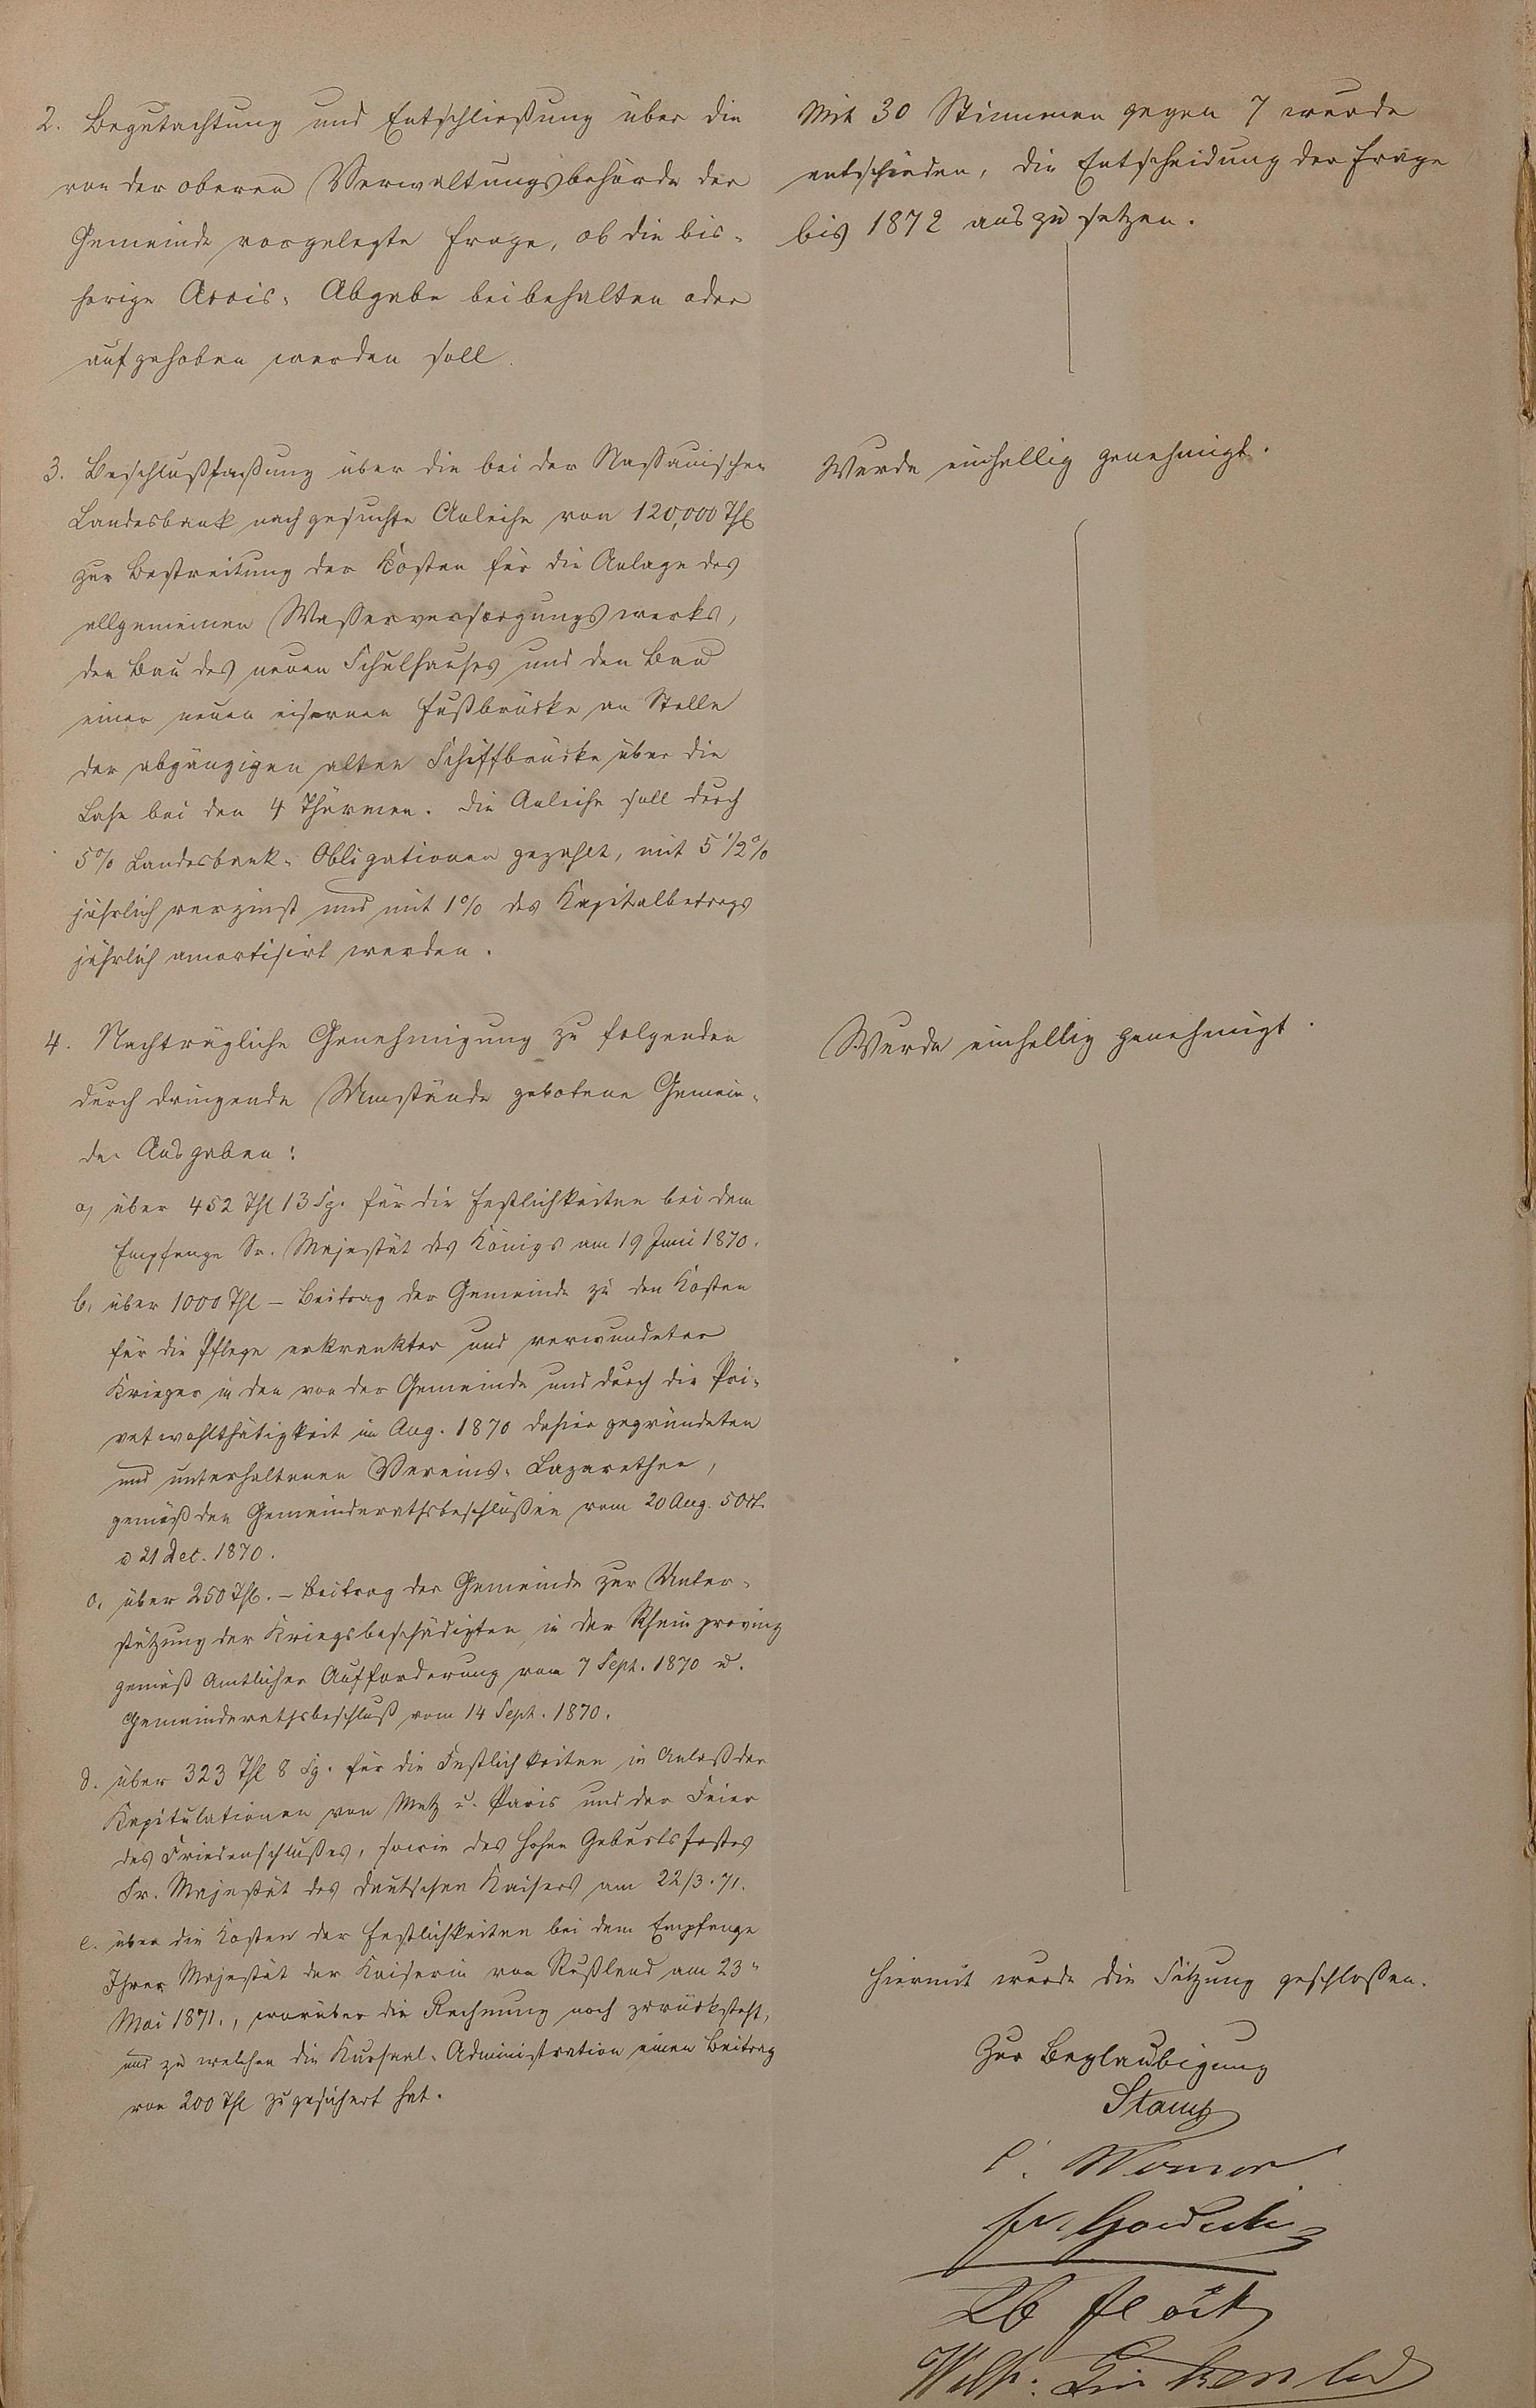 2. Begutachtung und Entschließung über die
von der oberen Verwaltungsbehörde der
Gemeinde vorgelegte Frage, ob die bis-
herige Accis-Abgabe beibehalten oder
aufgehoben werden soll.
Mit 30 Stimmen gegen 7 wurde
entschieden, die Entscheidung der Frage
bis 1872 auszusetzen.
3. Beschlußfaßung über die bei der Naßauischen
Landesbank nachgesuchte Anleihe von 120,000 Thl
zur Bestreitung der Kosten für die Anlage des
allgemeinen Waßerversorgungswerks,
den Bau des neuen Schulhauses und den Bau
einer neuen eisernen Fußbrücke an Stelle
der abgängigen alten Schiffbrücke über die
Lahn bei den 4 Thürmen. Die Anleihe soll durch
5% Landesbank-Obligationen gezahlt, mit 5 1/2 %
jährlich verzinst und mit 1% des Kapitalbetrags
jährlich amortisirt werden.
Wurde einhellig genehmigt.
4. Nachträgliche Genehmigung zu folgenden
durch dringende Umstände gebotene Gemein-
de-Ausgaben:
a, über 452 Thl 13 Sg. für die Festlichkeiten bei dem
Empfange Sr. Majestät des Königs am 19 Juni 1870.
b, über 1000 Thl – Beitrag der Gemeinde zu den Kosten
für die Pflege erkrankter und verwundeter
Krieger in den von der Gemeinde und durch die Pri-
vatwohlthätigkeit im Aug. 1870 dahier gegründeten
und unterhaltenen Vereins-Lazarethen,
gemäß den Gemeinderathsbeschlüßen vom 20 Aug. 5 Oct.
u 21 Dec. 1870.
c. über 250 Thl. – Beitrag der Gemeinde zur Unter-
stützung der Kriegsbeschädigten in der Rheinprovinz
gemäß Amtlicher Aufforderung vom 7 Sept. 1870 u.
Gemeinderathsbeschluß vom 14 Sept. 1870.
d. über 323 Thl 8 Sg. für die Festlichkeiten in Anlaß der
Kapitulationen von Metz u. Paris und der Feier
des Friedenschlußes, sowie des hohen Geburtsfestes
Sr. Majestät des deutschen Kaisers am 22/3. 71.
e. über die Kosten der Festlichkeiten bei dem Empfange
Ihrer Majestät der Kaiserin von Rußland am 23"
Mai 1871., worüber die Rechnung noch zurücksteht,
und zu welchen die Kursaal-Administration einen Beitrag
von 200 Thl zugesichert hat.
Wurde einhellig genehmigt.
Hiermit wurde die Sitzung geschloßen.
Zur Beglaubigung
Fr.
Wilh.